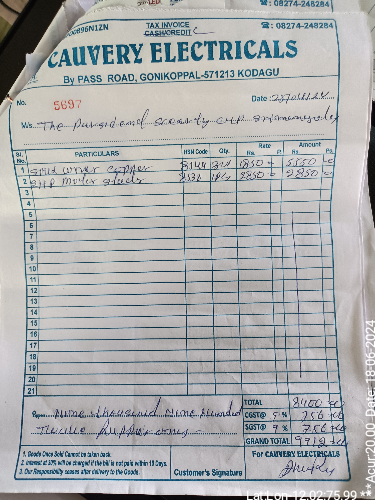 00896N1ZN
TAX INVOICE
CASH/CREDIT
☎: 08274-248284
CAUVERY ELECTRICALS
By PASS ROAD, GONIKOPPAL-571213 KODAGU
No. 5697
Date :
M/s. The
Sl. No. PARTICULARS HSN Code Qty. Rate Rs. P. Amount Rs. P.
1 copper 1850 5550
2 Motor 2850 2850
3
4
5
6
7
8
9
10
11
12
13
14
15
16
17
18
19
20
21
TOTAL 8400
Rupees Nine thousand Nine hundred
CGST@ 9 % 756
Twelve Rupees only
SGST@ 9 % 756
GRAND TOTAL 9912
1. Goods Once Sold Cannot be taken back.
2. Interest at 30% will be charged if the bill is not paid within 10 Days.
3. Our Responsibility ceases after delivery to the Goods.
Customer's Signature
For CAUVERY ELECTRICALS
Date:18-06-2024
Acur:20.00
12:02:75.99